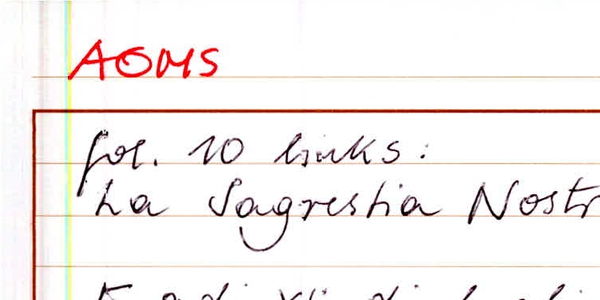 AOMS
fol. 10 links:
La Sagrestia Nostr